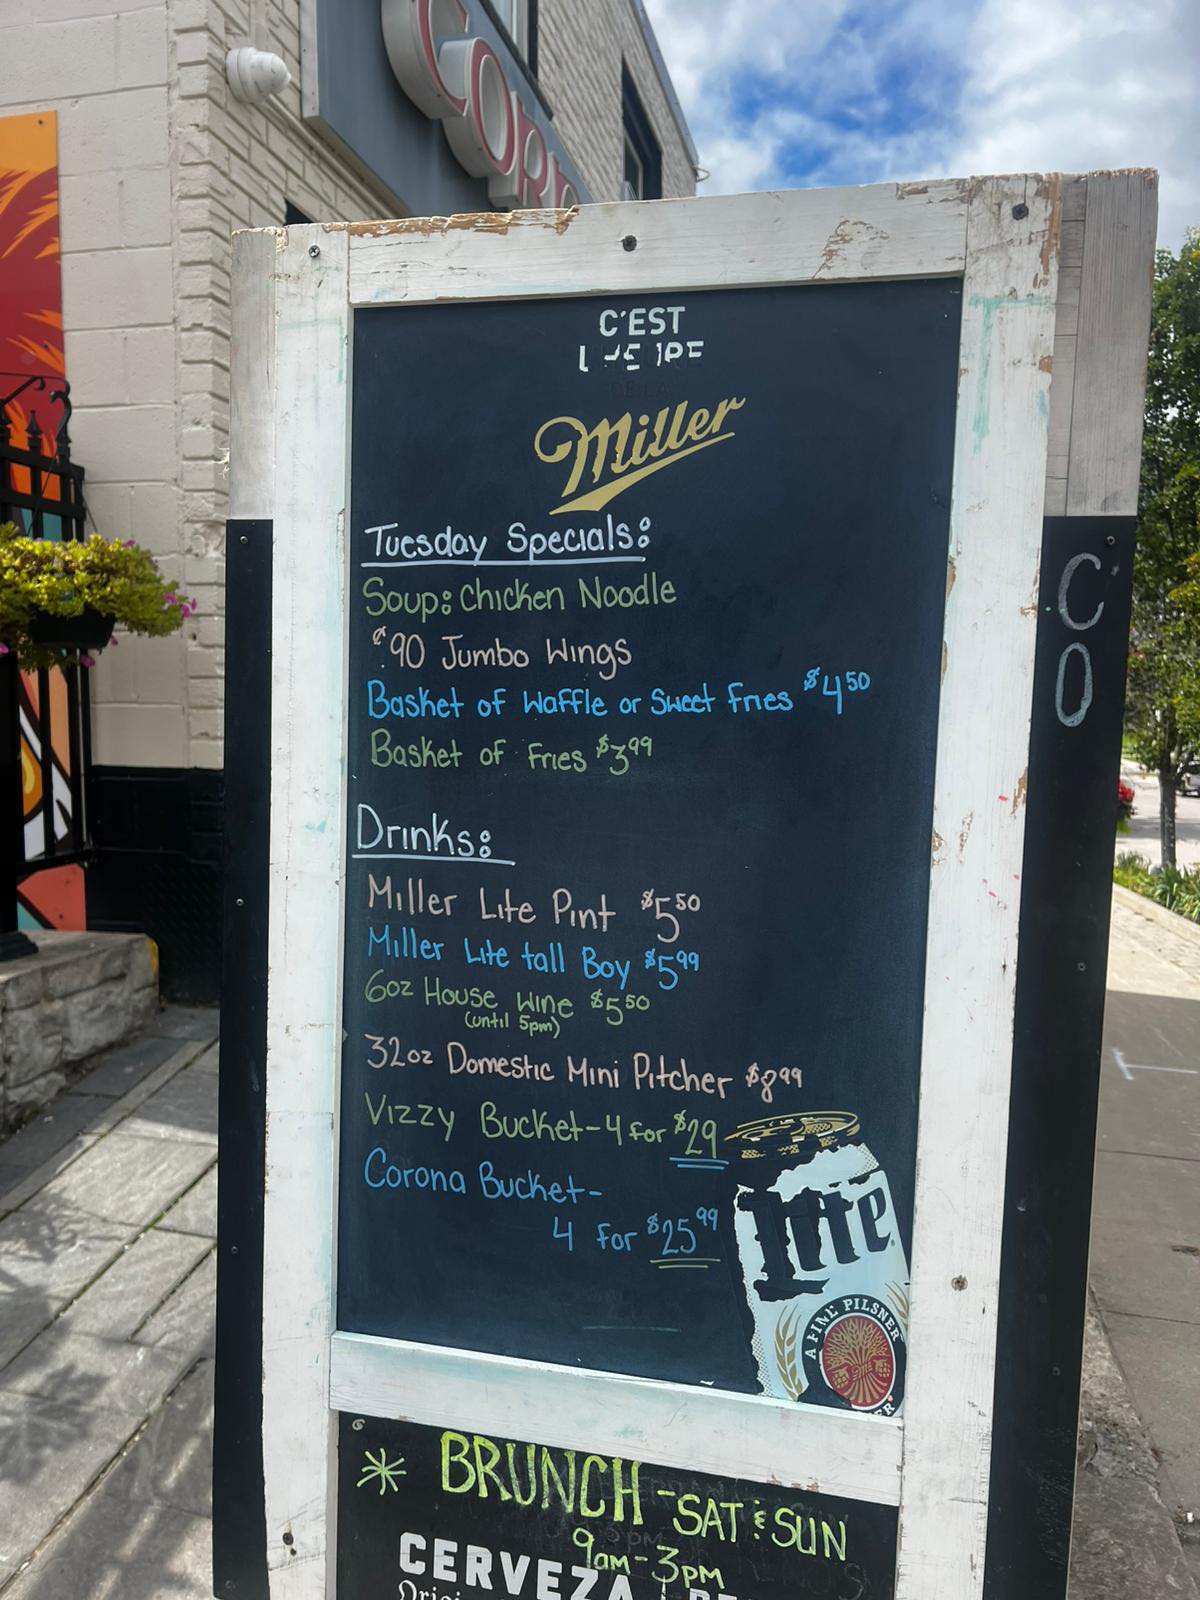 CORN
C'EST
Miller
Tuesday Specials:
Soup: Chicken Noodle
¢.90 Jumbo Wings
Basket of Waffle or Sweet Fries $4.50
Basket of Fries $3.99
Drinks:
Miller Lite Pint $5.50
Miller Lite tall Boy $5.99
6oz House Wine $5.50
(until 5pm)
32oz Domestic Mini Pitcher $8.99
Vizzy Bucket-4 for $29
Corona Bucket-
4 for $25.99
Lite
A FINE PILSNER
CO
* BRUNCH - SAT & SUN
9am-3pm
CERVEZA